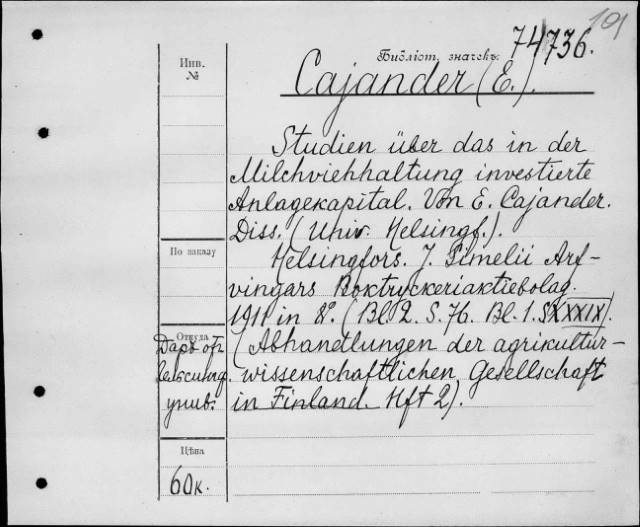 101
Библіот. значекъ 74736.
Инв.
№
Cajander (E.).
Studien über das in der
Milchviehhaltung investierte
Anlagekapital. Von E. Cajander.
Diss. (Univ. Helsingf.).
Helsingfors. J. Simelii Arf-
vingars Boktryckeriaktiebolag.
1911 in 8º. (Bl. 2. S. 76. Bl. 1. S. XXXIX).
(Abhandlungen der agrikultur-
wissenschaftlichen Gesellschaft
in Finland. Hft 2).
По заказу
Откуда
Даръ от
унив.
Цѣна
60к.